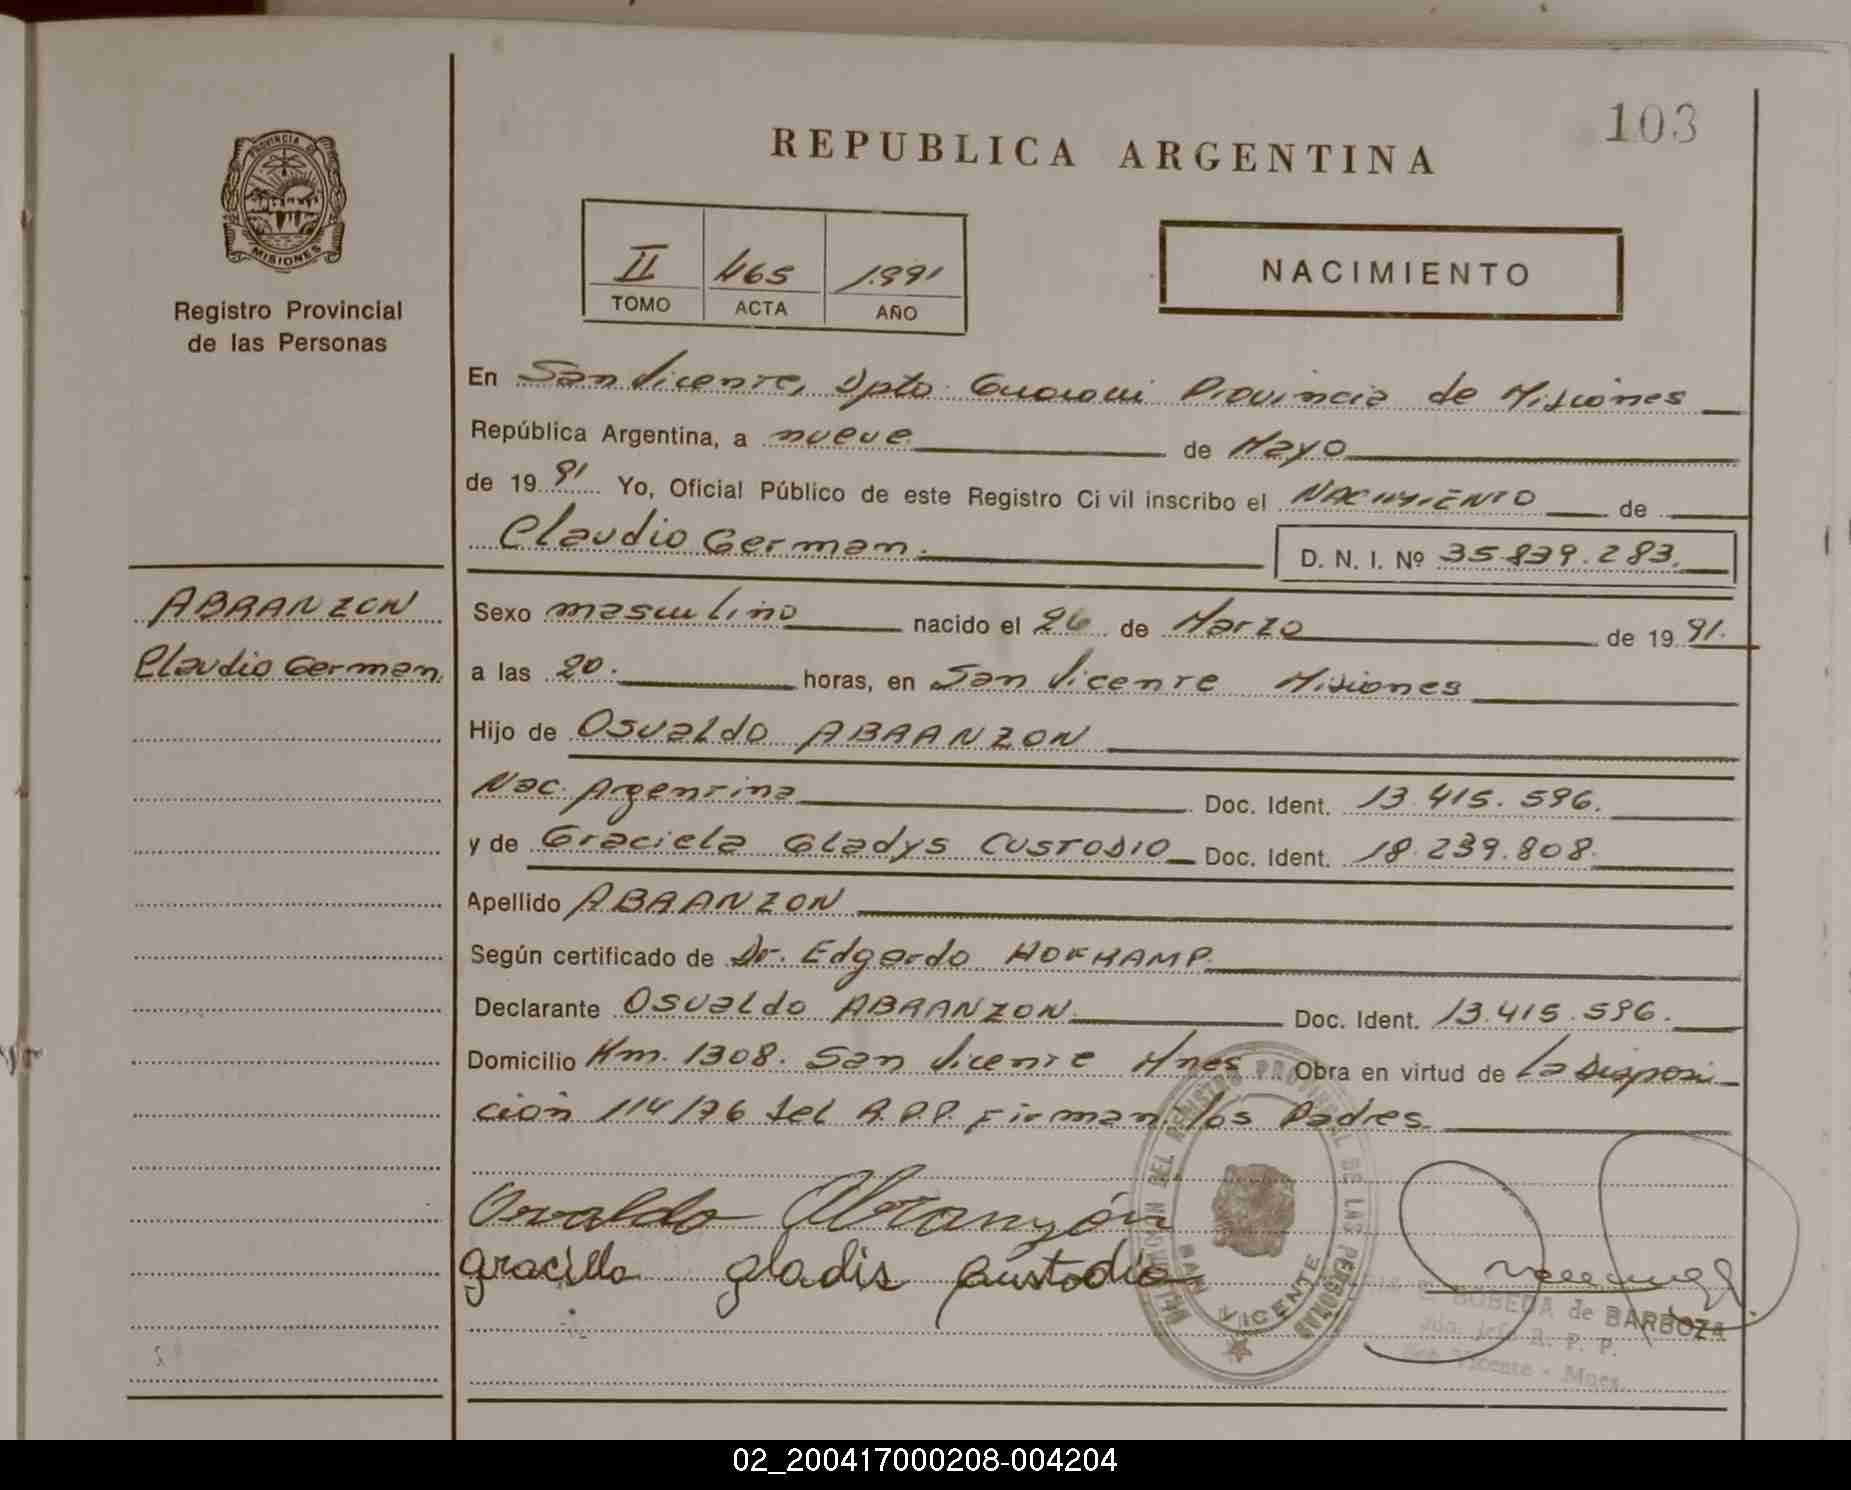 103
REPUBLICA ARGENTINA
PROVINCIA DE
MISIONES
Registro Provincial
de las Personas
II 465 1991
TOMO ACTA AÑO
NACIMIENTO
En San Vicente, Dpto Guarani Provincia de Misiones
República Argentina, a nueve de Mayo
de 1991 Yo, Oficial Público de este Registro Civil inscribo el NACIMIENTO de
Claudio German. D. N. I. Nº 35.839.283.
ABRANZON
Claudio German.
Sexo masculino nacido el 26 de Marzo de 1991.
a las 20. horas, en San Vicente Misiones
Hijo de Osvaldo ABRANZON
Nac. Argentina Doc. Ident. 13.415.596.
y de Graciela Gladys CUSTODIO Doc. Ident. 18.239.808.
Apellido ABRANZON
Según certificado de Dr. Edgardo HOFKAMP.
Declarante Osvaldo ABRANZON. Doc. Ident. 13.415.596.
Domicilio Km. 1308. San Vicente Mnes Obra en virtud de La Disposi
ción 114/76 del R.P.P. Firman los Padres.
Osvaldo Abranzón
graciela gladis custodio
DELEGACION DEL REGISTRO PROVINCIAL DE LAS PERSONAS
SAN VICENTE
BOBEDA de BARBOZA
Jefe R. P. P.
San Vicente - Mnes.
02_200417000208-004204